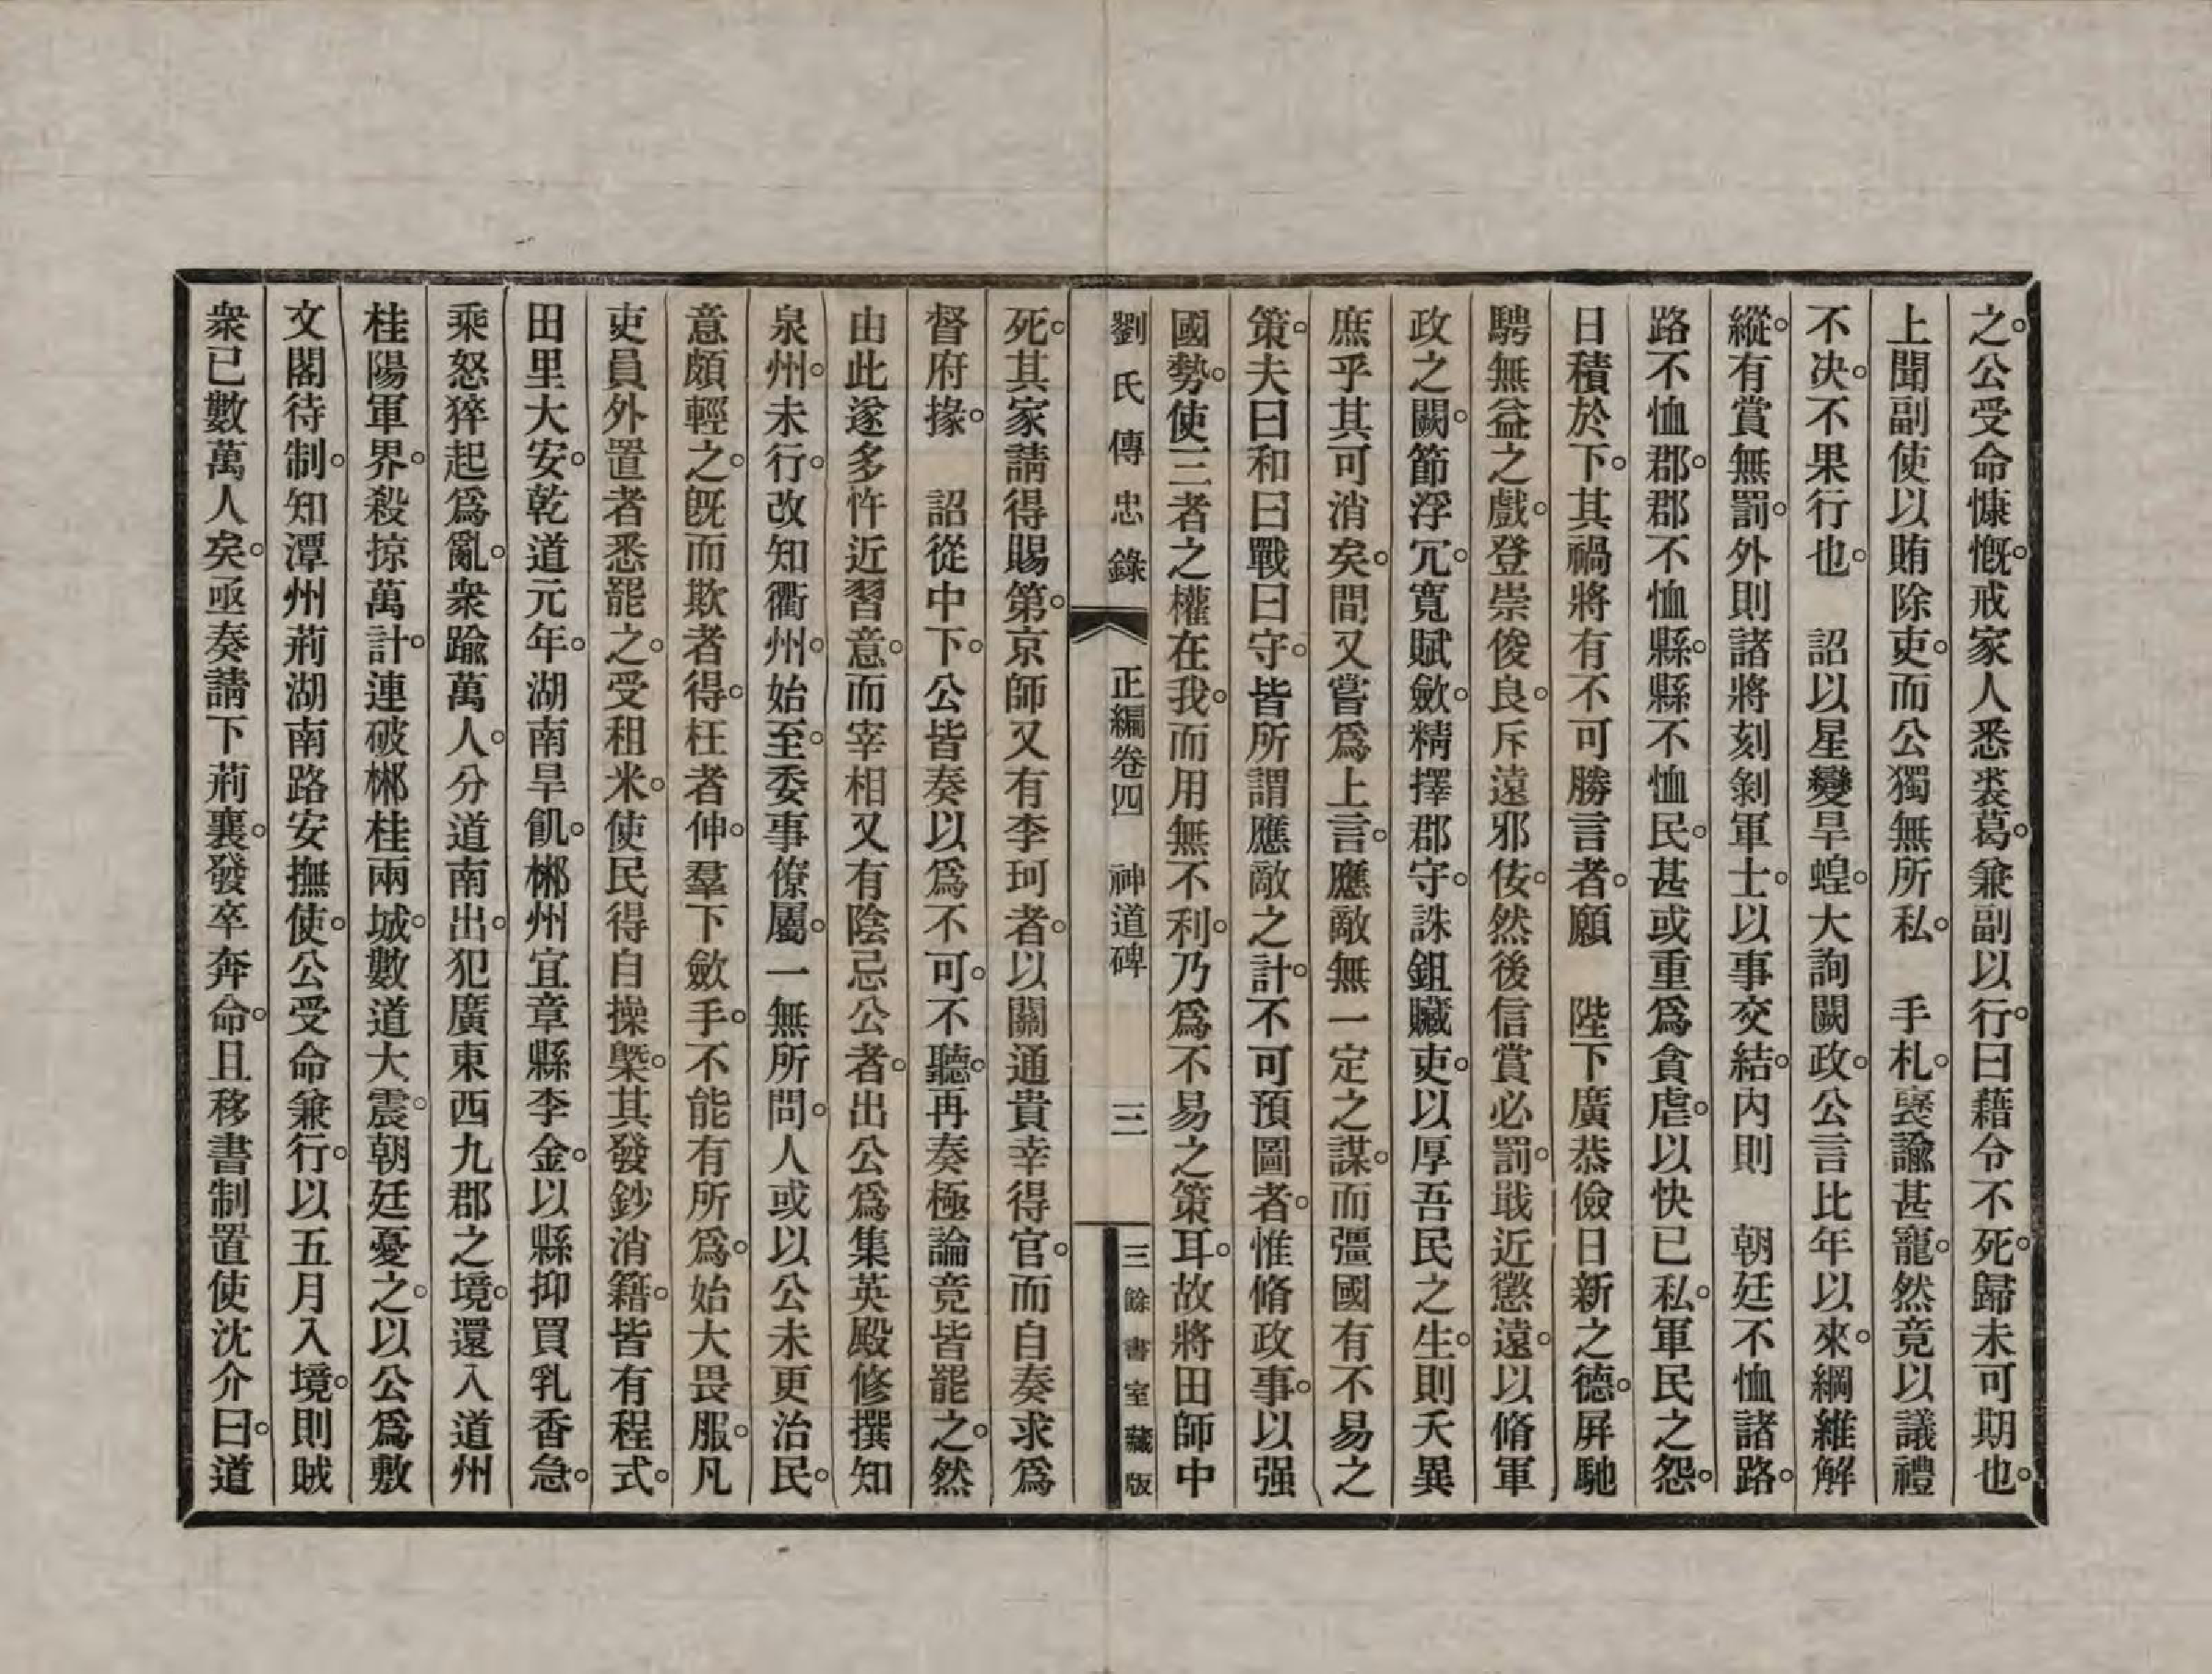 之。公受命慷慨。戒家人悉裘葛。兼副以行。曰藉令不死。歸未可期也。
上聞副使以賄除吏。而公獨無所私。　手札。裦諭甚寵。然竟以議禮
不決。不果行也。　詔以星變旱蝗。大詢闕政。公言比年以來。綱維解
縱。有賞無罰。外則諸將刻剝軍士。以事交結。內則　朝廷不恤諸路。
路不恤郡。郡不恤縣。縣不恤民。甚或重爲貪虐。以快已私。軍民之怨。
日積於下。其禍將有不可勝言者。願　陛下廣恭儉日新之德。屏馳
騁無益之戲。登崇俊良。斥遠邪佞。然後信賞必罰。戢近懲遠。以脩軍
政之闕。節浮冗。寬賦斂。精擇郡守。誅鉏贓吏。以厚吾民之生。則天異
庶乎其可消矣。間又嘗爲上言。應敵無一定之謀。而彊國有不易之
策。夫曰和曰戰曰守。皆所謂應敵之計。不可預圖者。惟脩政事。以强
國勢。使三者之權在我。而用無不利。乃爲不易之策耳。故將田師中
劉氏傳忠錄　正編卷四　神道碑　三　三餘書室藏版
死。其家請得賜第。京師又有李珂者。以關通貴幸得官。而自奏求爲
督府掾。　詔從中下。公皆奏以爲不可。不聽。再奏極論竟皆罷之。然
由此遂多忤近習意。而宰相又有陰忌公者。出公爲集英殿修撰知
泉州。未行。改知衢州。始至。委事僚屬。一無所問。人或以公未更治民。
意頗輕之。旣而欺者得。枉者伸。羣下斂手。不能有所爲。始大畏服。凡
吏員外置者悉罷之。受租米。使民得自操槩。其發鈔消籍。皆有程式。
田里大安。乾道元年。湖南旱飢。郴州宜章縣李金。以縣抑買乳香急。
乘怒猝起爲亂。衆踰萬人。分道南出。犯廣東西九郡之境。還入道州
桂陽軍界。殺掠萬計。連破郴桂兩城。數道大震。朝廷憂之。以公爲敷
文閣待制。知潭州荊湖南路安撫使。公受命兼行。以五月入境。則賊
衆已數萬人矣。亟奏請下荊襄。發卒奔命。且移書制置使沈介曰。道